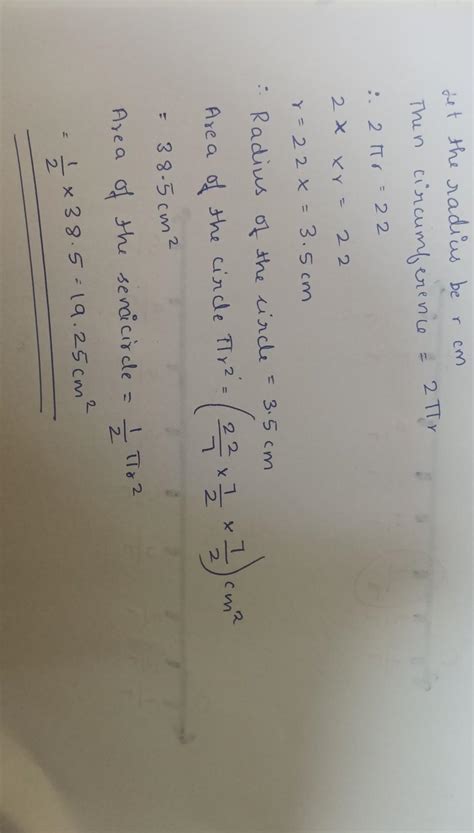 Let the radius be r cm
Then circumference = 2πr
∴ 2πr = 22
2 x xr = 22
r = 22x = 3.5cm
∴ Radius of the circle = 3.5cm
Area of the circle πr² = (22/7 x 7/2 x 7/2) cm²
= 38.5cm²
Area of the semicircle = 1/2 πr²
= 1/2 x 38.5 = 19.25cm²